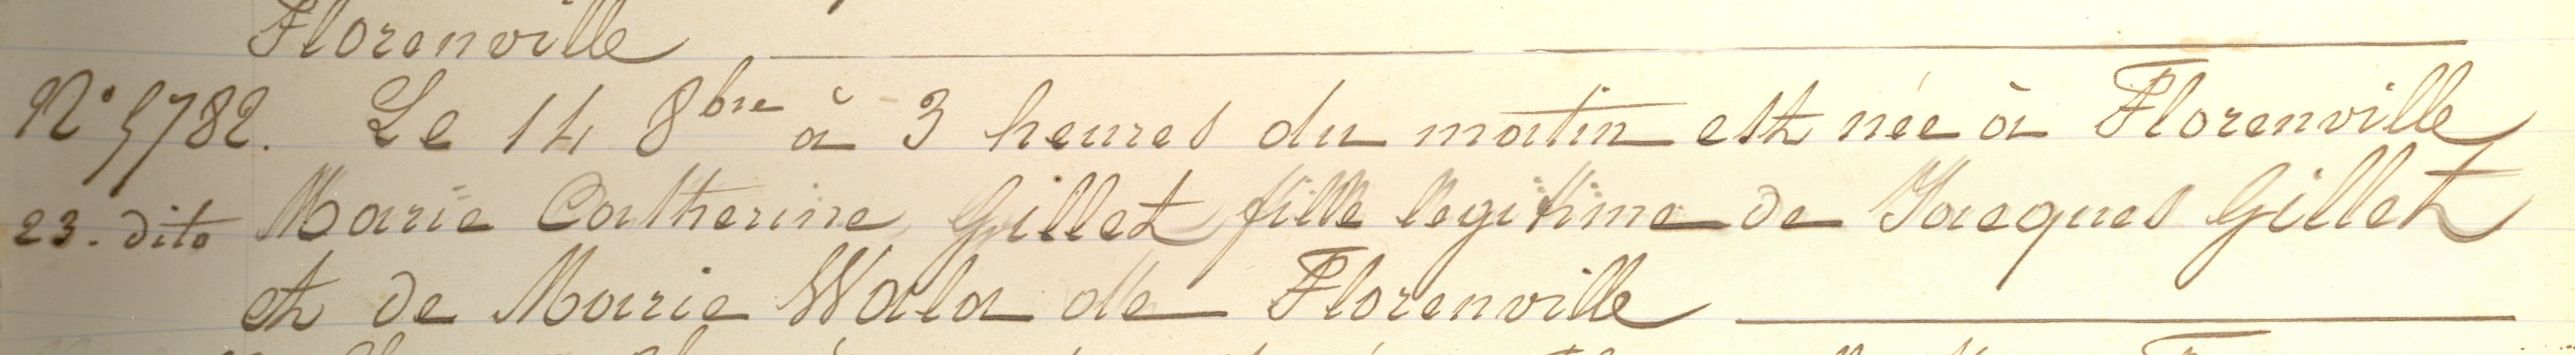 Florenville
N° 5782. Le 14 8bre à 3 heures du matin est née à Florenville
23. dito Marie Catherine Gillet fille legitime de Jacques Gillet
et de Marie Wala de Florenville